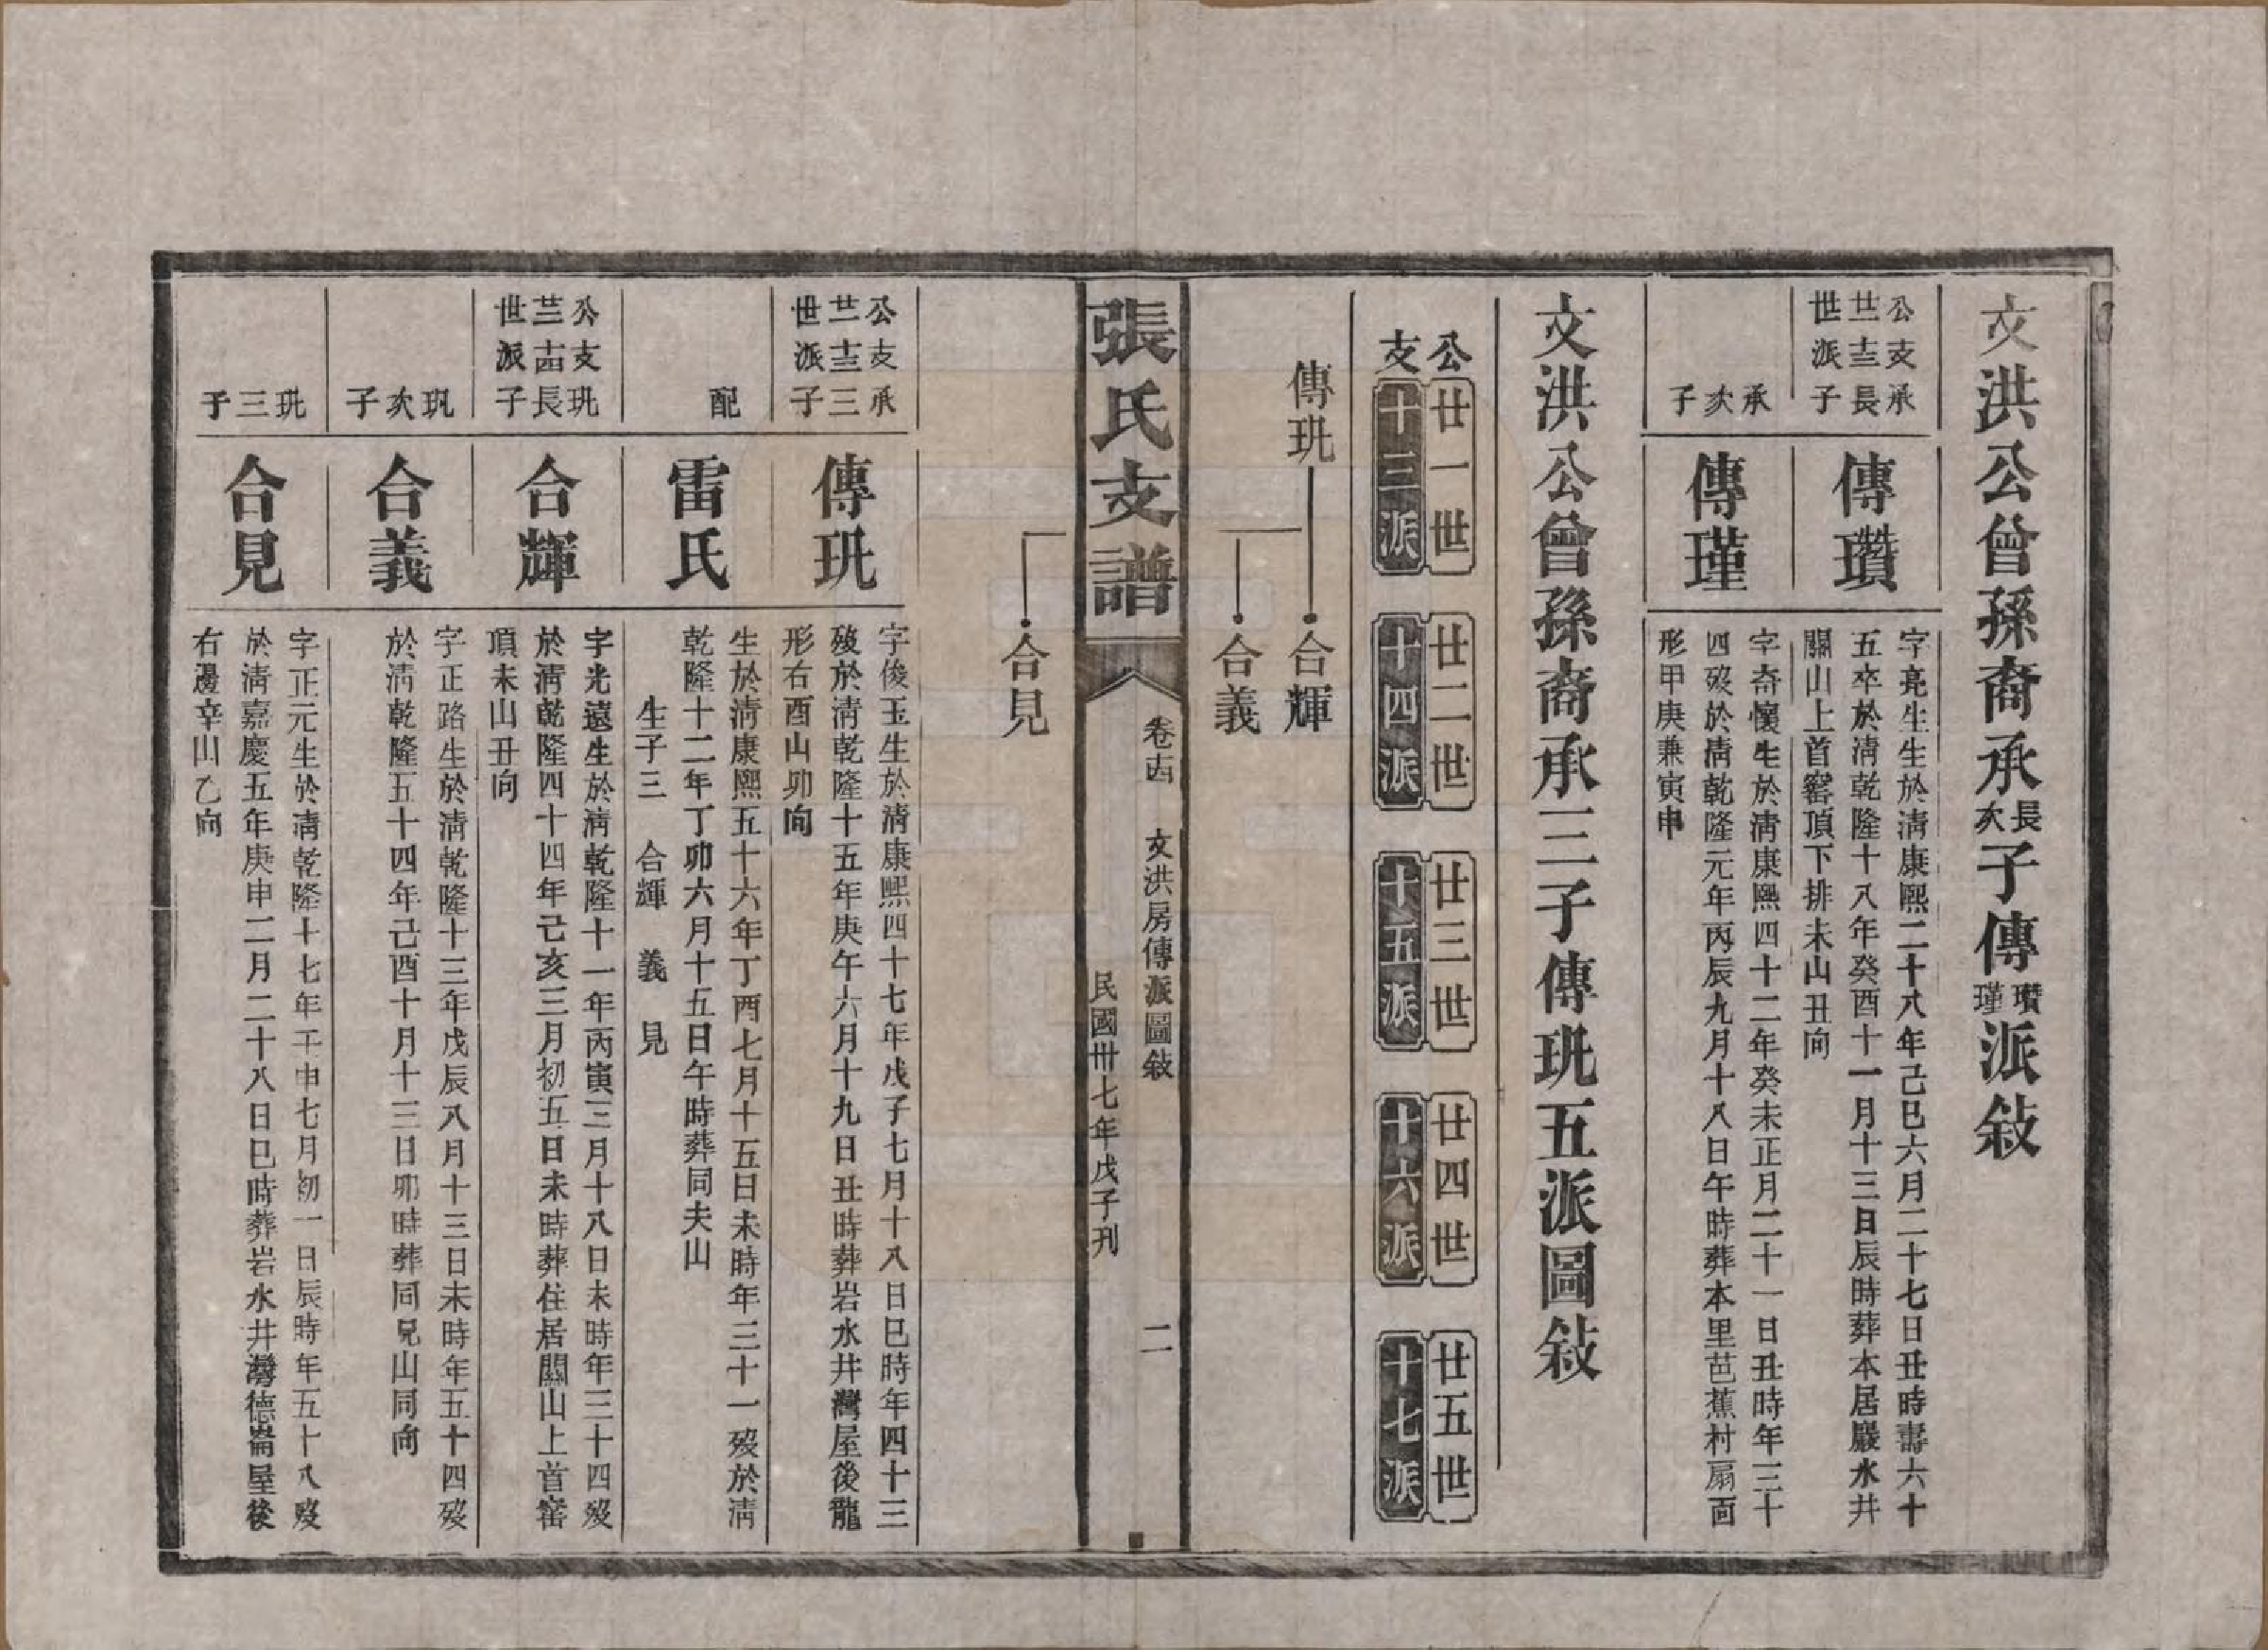 文洪公曾孫裔承長次子傳瓚瑾派敍
公支承
廿一世十三派長子
傳瓚
字亮生生於清康熙二十八年己巳六月二十七日丑時壽六十
五卒於清乾隆十八年癸酉十一月十三日辰時葬本居巖水井
關山上首窰頂下排未山丑向
承次子
傳瑾
字奇懷生於清康熙四十二年癸未正月二十一日丑時年三十
四歿於清乾隆元年丙辰九月十八日午時葬本里芭蕉村扇面
形甲庚兼寅申
文洪公曾孫裔承三子傳玧五派圖敍
公支
廿一世 廿二世 廿三世 廿四世 廿五世
十三派 十四派 十五派 十六派 十七派
傳玧
合輝
合義
張氏支譜
卷十四 文洪房傳派圖敍 二
民國卅七年戊子刊
合見
公支承
廿一世十三派三子
傳玧
字俊玉生於清康熙四十七年戊子七月十八日巳時年四十三
歿於清乾隆十五年庚午六月十九日丑時葬岩水井灣屋後龍
形右酉山卯向
配
雷氏
生於清康熙五十六年丁酉七月十五日未時年三十一歿於清
乾隆十二年丁卯六月十五日午時葬同夫山
生子三 合輝 義 見
公支玧
廿二世十四派長子
合輝
字光遠生於清乾隆十一年丙寅三月十八日未時年三十四歿
於清乾隆四十四年己亥三月初五日未時葬住居關山上首窰
頂未山丑向
玧次子
合義
字正路生於清乾隆十三年戊辰八月十三日未時年五十四歿
於清乾隆五十四年己酉十月十三日卯時葬同兄山同向
玧三子
合見
字正元生於清乾隆十七年壬申七月初一日辰時年五十八歿
於清嘉慶五年庚申二月二十八日巳時葬岩水井灣德崙屋後
右邊辛山乙向